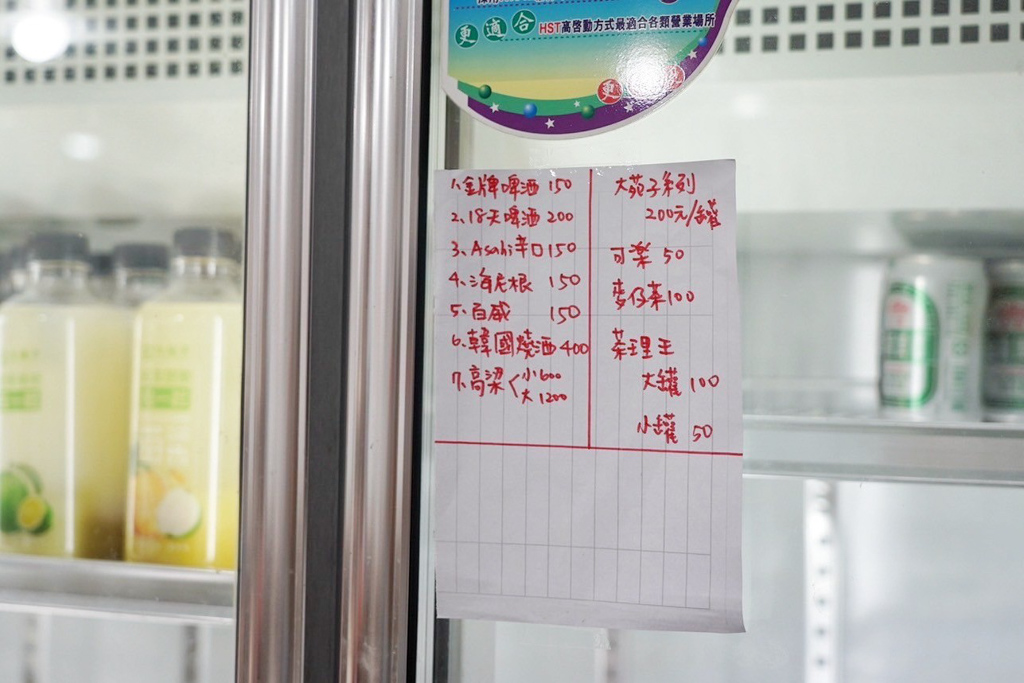 更適合
HST高啓動方式最適合各類營業場所
更
1、金牌啤酒 150
2、18天啤酒 200
3、Asahi辛口 150
4、海尼根 150
5、百威 150
6、韓國燒酒 400
7、高梁 小600
大1200
大苑子系列
200元/罐
可樂 50
麥仔茶 100
茶理王
大罐 100
小罐 50